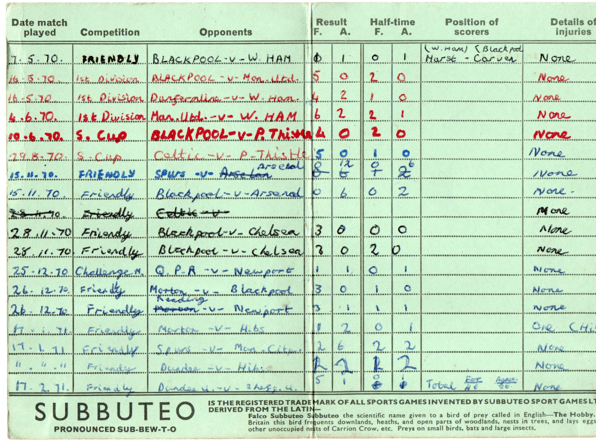 Date match played Competition Opponents Result F. A. Half-time F. A. Position of scorers Details of injuries
7.5.70. FRIENDLY BLACKPOOL-v-W. HAM 0 1 0 1 (W.Ham) Hurst - (Blackpool) Carver None
.5.70. 1st Division BLACKPOOL -v- Man. Utd. 5 0 2 0 None
.5.70. 1st Division Dunfermline -v- W. Ham. 4 2 1 0 None
4.6.70. 1st Division Man. Utd. -v- W. HAM 6 2 2 1 None
10.6.70. S. Cup BLACKPOOL-v-P. Thistle 4 0 2 0 None
29.8.70. S. Cup Celtic -v- P. Thistle 5 0 1 0 None
15.11.70. FRIENDLY SPURS -v- Arsenal 0 12 0 6 None
15.11.70. Friendly Blackpool-v-Arsenal 0 6 0 2 None.
Friendly Celtic -v- None
28.11.70 Friendly Blackpool-v-Chelsea 3 0 0 0 None
28.11.70 Friendly Blackpool-v-Chelsea 0 2 0 None
25.12.70 Challenge M. Q.P.R -v- Newport 1 1 0 1 None
26.12.70 Friendly Morton -v- Blackpool 3 0 1 0 None
26.12.70 Friendly Reading Morton -v- Newport 3 1 1 1 None
17.1.71. Friendly Morton -v- Hibs 1 2 0 1 One (Hi
17.1.71 Friendly Spurs -v- Man. City 2 6 2 2 None
" " " Friendly Dundee -v- Hibs 2 2 2 2 None
17.2.71. Friendly Dundee U. -v- Sheff. U. 5 1 Total None
SUBBUTEO
PRONOUNCED SUB-BEW-T-O
IS THE REGISTERED TRADE MARK OF ALL SPORTS GAMES INVENTED BY SUBBUTEO SPORT GAMES LT
DERIVED FROM THE LATIN—
Falco Subbuteo Subbuteo the scientific name given to a bird of prey called in English—The Hobby.
Britain this bird frequents downlands, heaths, and open parts of woodlands, nests in trees, and lays eggs
other unoccupied nests of Carrion Crow, etc. Preys on small birds, bats and large insects.